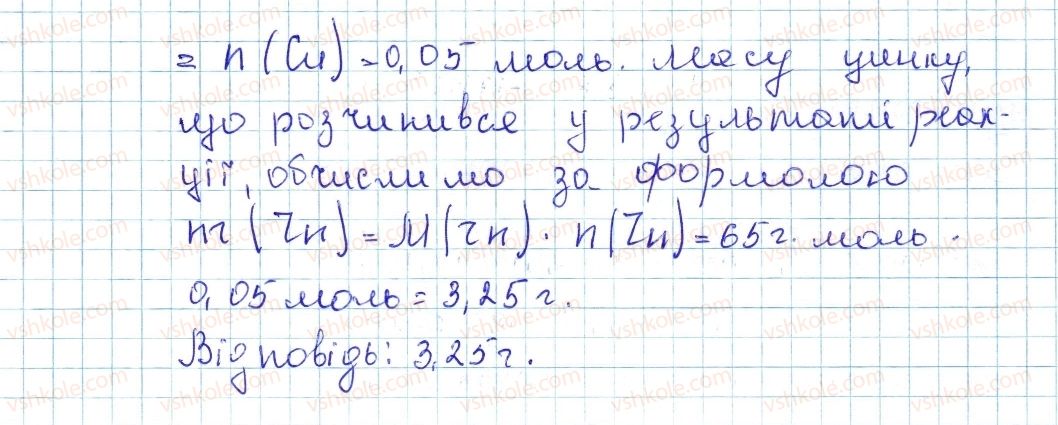 = n (Cu) = 0,05 моль. Масу цинку,
що розчинився у результаті реак-
ції, обчислимо за формолою
m (Zn) = M (Zn) · n (Zn) = 65 г · моль ·
0,05 моль = 3,25 г.
Відповідь: 3,25 г.